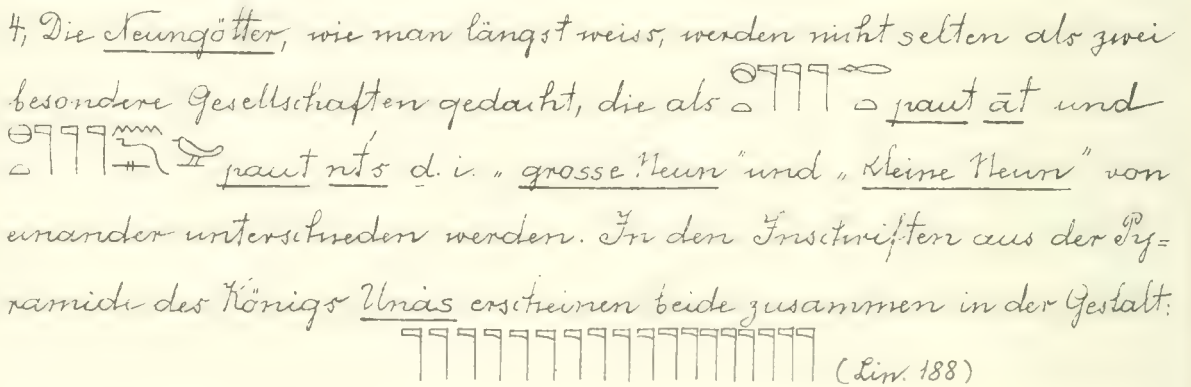 4, Die Neungötter, wie man längst weiss, werden nicht selten als zwei
besondere Gesellschaften gedacht, die als 𓇴𓏏𓊹𓊹𓊹𓉻𓏏 paut āt und
𓇴𓏏𓊹𓊹𓊹𓈖𓆓𓊃𓅪 paut nt́s d. i. „grosse Neun" und „kleine Neun" von
einander unterschieden werden. In den Inschriften aus der Py=
ramide des Königs Unȧs erscheinen beide zusammen in der Gestalt:
𓊹𓊹𓊹𓊹𓊹𓊹𓊹𓊹𓊹𓊹𓊹𓊹𓊹𓊹𓊹𓊹𓊹𓊹 (Lin. 188)